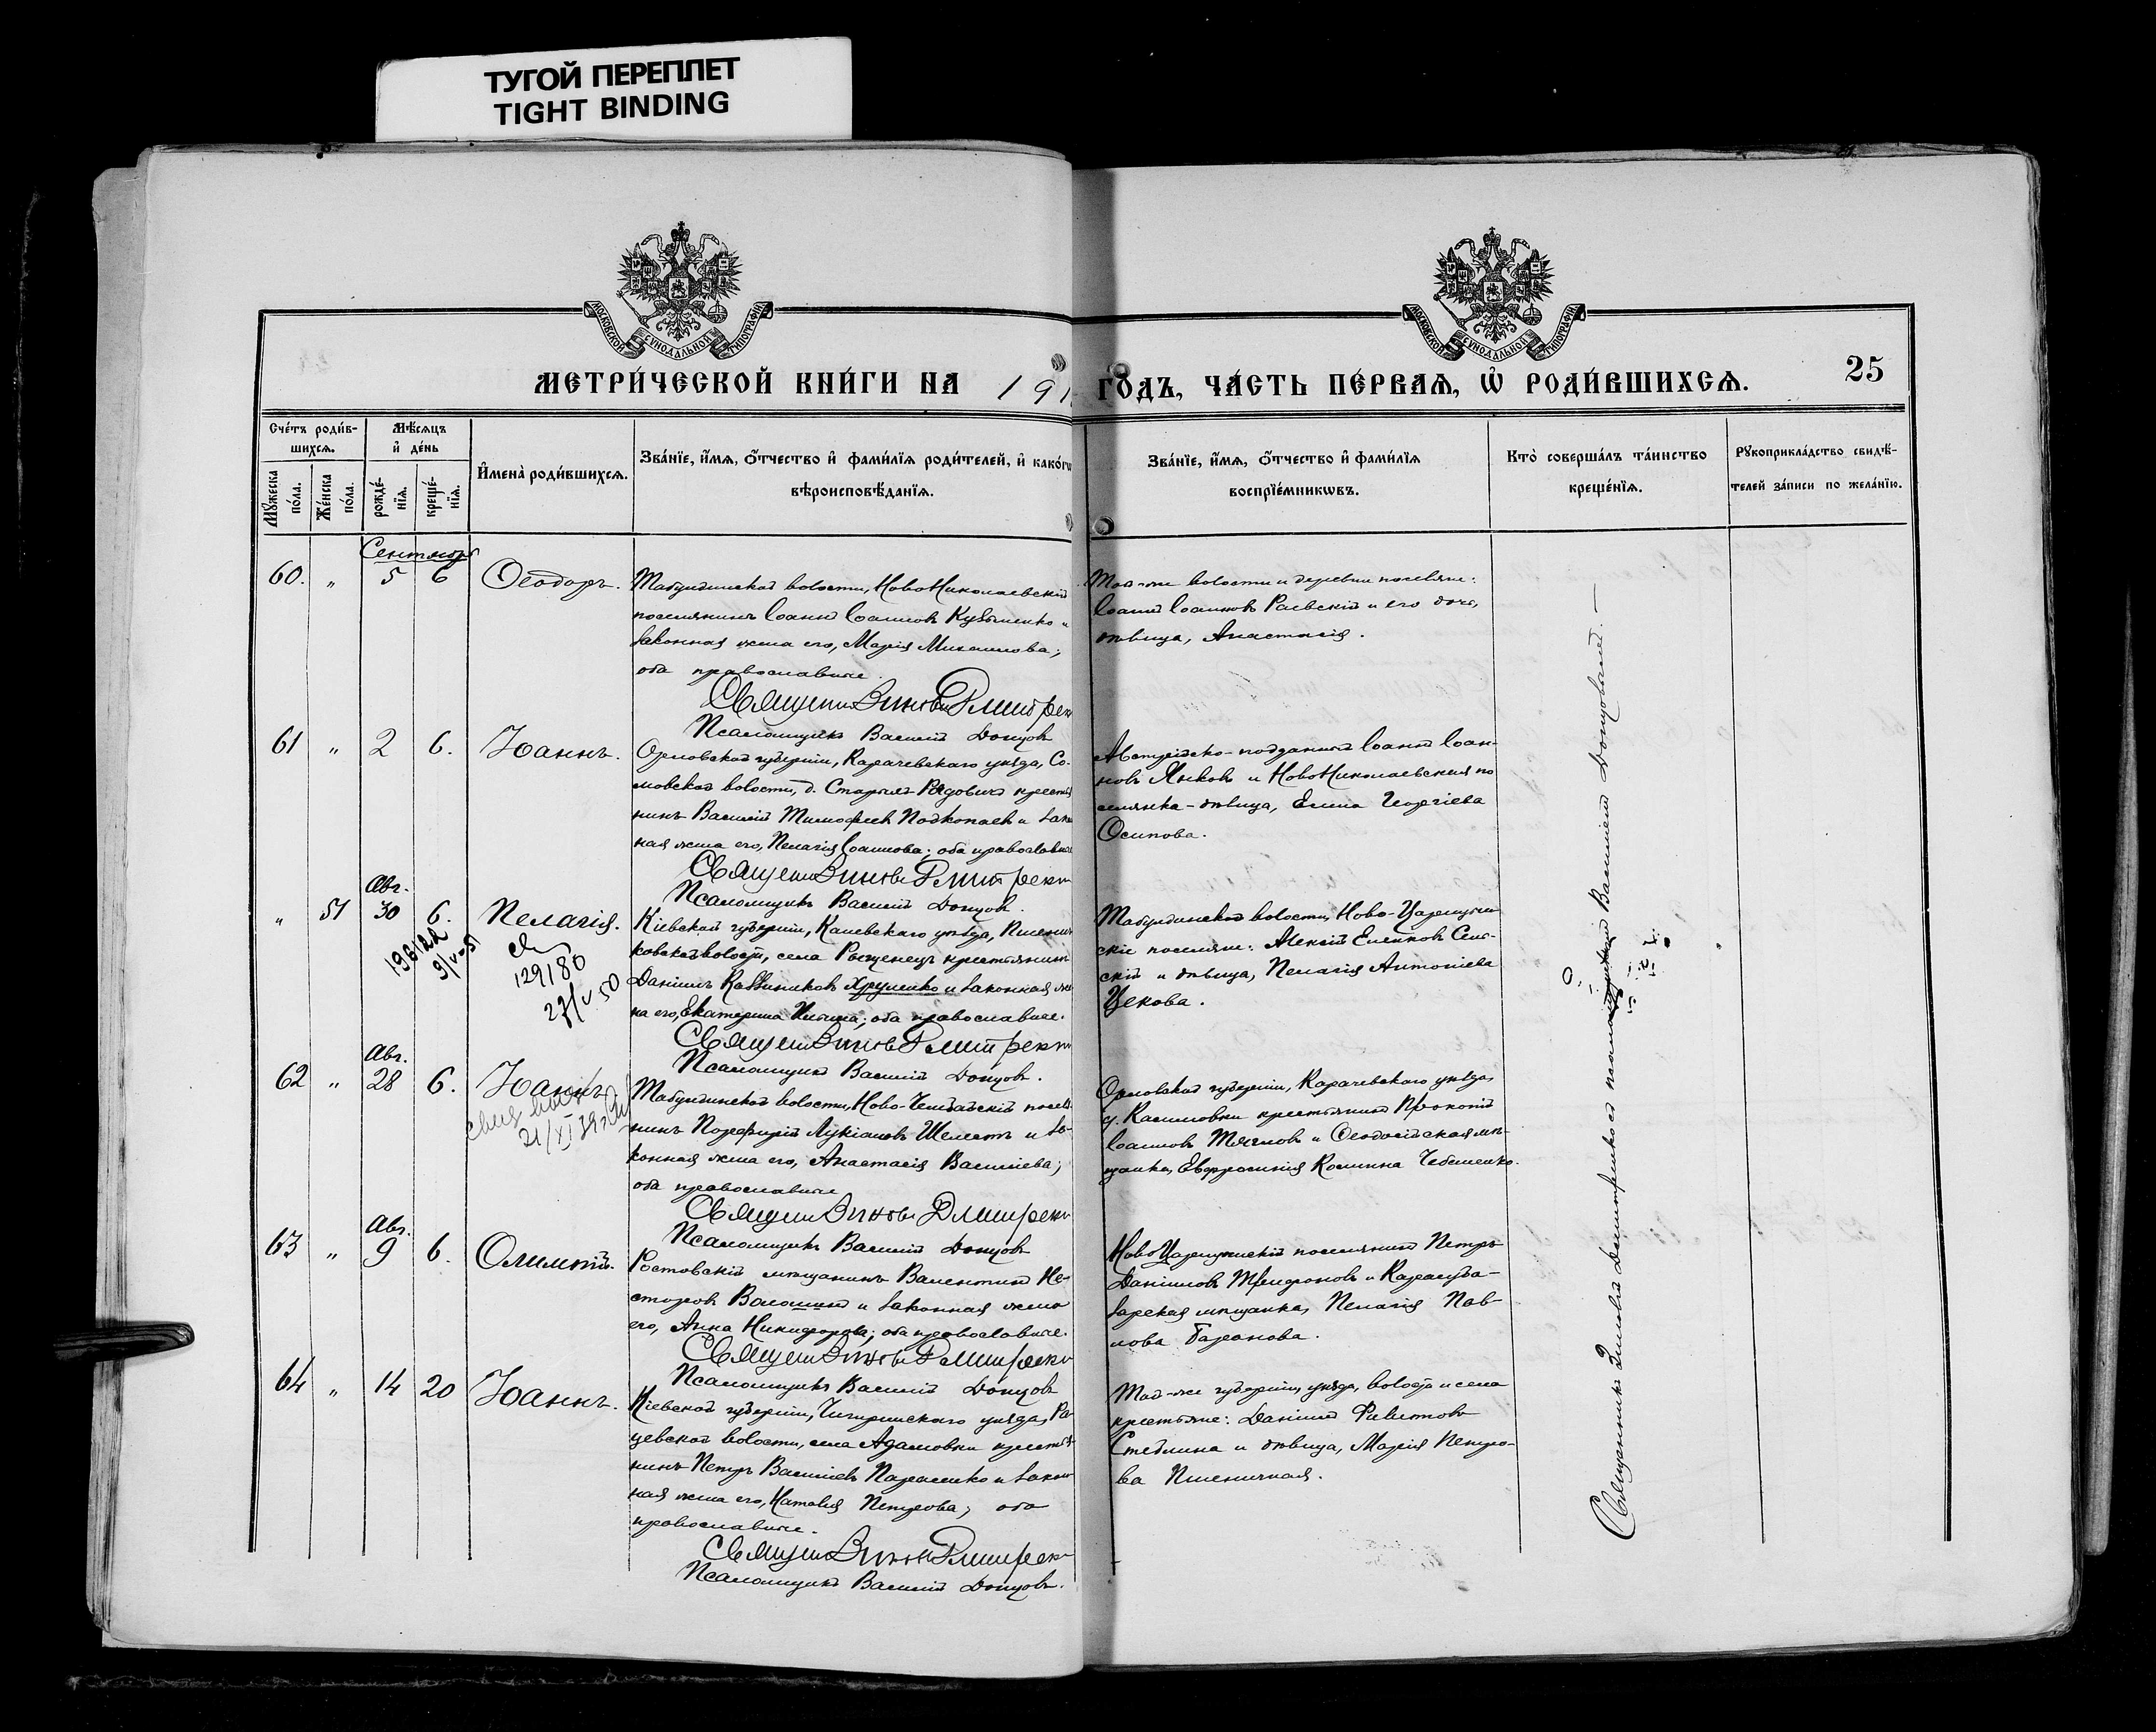 ТУГОЙ ПЕРЕПЛЕТ
TIGHT BINDING
МОСКОВСКОЙ СѴНОДАЛЬНОЙ ТИПОГРАФІИ
МОСКОВСКОЙ СѴНОДАЛЬНОЙ ТИПОГРАФІИ
МЕТРИ́ЧЕСКОЙ КНИ́ГИ НА 191
ГО́ДЪ, ЧА́СТЬ ПЕ́РВАѦ, Ѡ҆ РОДИ́ВШИХСѦ.
25
Сче́тъ роди́в-
шихсѧ.
Мꙋжеска по́ла.
Же́нска по́ла.
Мѣ́сѧцъ и҆ де́нь
рожде́-нїѧ.
креще́-нїѧ.
И҆мена̀ роди́вшихсѧ.
Зва́нїе, и҆́мѧ, ѻ҆́тчество и҆ фами́лїѧ роди́телей, и҆ како́гѡ
вѣроисповѣ́данїѧ.
Зва́нїе, и҆́мѧ, ѻ҆́тчество и҆ фами́лїѧ
воспрїе́мникѡвъ.
Кто̀ соверша́лъ та́инство
креще́нїѧ.
Рꙋкоприкла́дство свидѣ́-
телей за́писи по жела́нїю.
Сентябрь
60. " 5 6 Ѳеодоръ.
Табулдинской волости, НовоНиколаевскій
поселянинъ Іоаннъ Іоанновъ Кузьменко и
законная жена его, Марія Михаилова;
оба православные.
Псаломщикъ Василій Донцовъ
Той-же волости и деревни поселяне:
Іоаннъ Іоанновъ Раевскій и его дочь,
дѣвица, Анастасія.
61 " 2 6. Іоаннъ.
Орловской губерніи, Карачевскаго уѣзда, Со-
мовской волости, д. Старыхъ Радовищ крестья
нинъ Василій Тимофеевъ Подкопаевъ и закон
ная жена его, Пелагія Іоаннова; оба православные
Псаломщикъ Василій Донцовъ.
Австрійско-подданный Іоаннъ Іоан-
новъ Янковъ и НовоНиколаевская по
селянка-дѣвица, Елена Георгіева
Осипова.
Авг.
" 51 30 6. Пелагія.
196122
9/V-51
129180
27/V 50
Кіевской губерніи, Каневскаго уѣзда, Пшенич
ковской волости, села Рощенецъ крестьянинъ
Даніилъ Каллиниковъ Хруленко и законная же
на его, Екатерина Ильина; оба православные.
Псаломщикъ Василій Донцовъ.
Табулдинской волости, Ново-Царицын
скіе поселяне: Алексій Еленковъ
скій и дѣвица, Пелагія Антоніева
Цекова.
Авг.
62 " 28 6. Іоаннъ
21/XI 39
Табулдинской волости, Ново-
нинъ Порфирій Лукіановъ Шелестъ и за-
конная жена его, Анастасія Василіева;
оба православные
Псаломщикъ Василій Донцовъ
Орловской губерніи, Карачевскаго уѣзда,
д. Касиловки крестьянинъ Прокопій
Іоанновъ Тяглов и Ѳеодосійская мѣ-
щанка, Евфросинія Космина
Авг.
63 " 9 6. Олимпій.
Ростовскій мѣщанинъ Валентинъ Не-
сторовъ Волошинъ и законная жена
его, Анна Никифорова; оба православные.
Псаломщикъ Василій Донцовъ
НовоЦарицынскій поселянинъ Петръ
Даніиловъ Трифоновъ и Карасуба-
зарская мѣщанка, Пелагія Пав-
лова Баранова.
64 " 14 20 Іоаннъ.
Кіевской губерніи, Чигиринскаго уѣзда, Ра
цевской волости, села Адамовки крестья
нинъ Петръ Василіевъ Параненко и закон
ная жена его, Наталія Петрова; оба
православные.
Псаломщикъ Василій Донцовъ.
Той-же губерніи, уѣзда, волости и села
крестьяне: Даніилъ Филиповъ
Стеблина и дѣвица, Марія Петро-
ва Пшеничная.
Священникъ Зиновій Димитренко съ псаломщикомъ Василіемъ Донцовымъ.